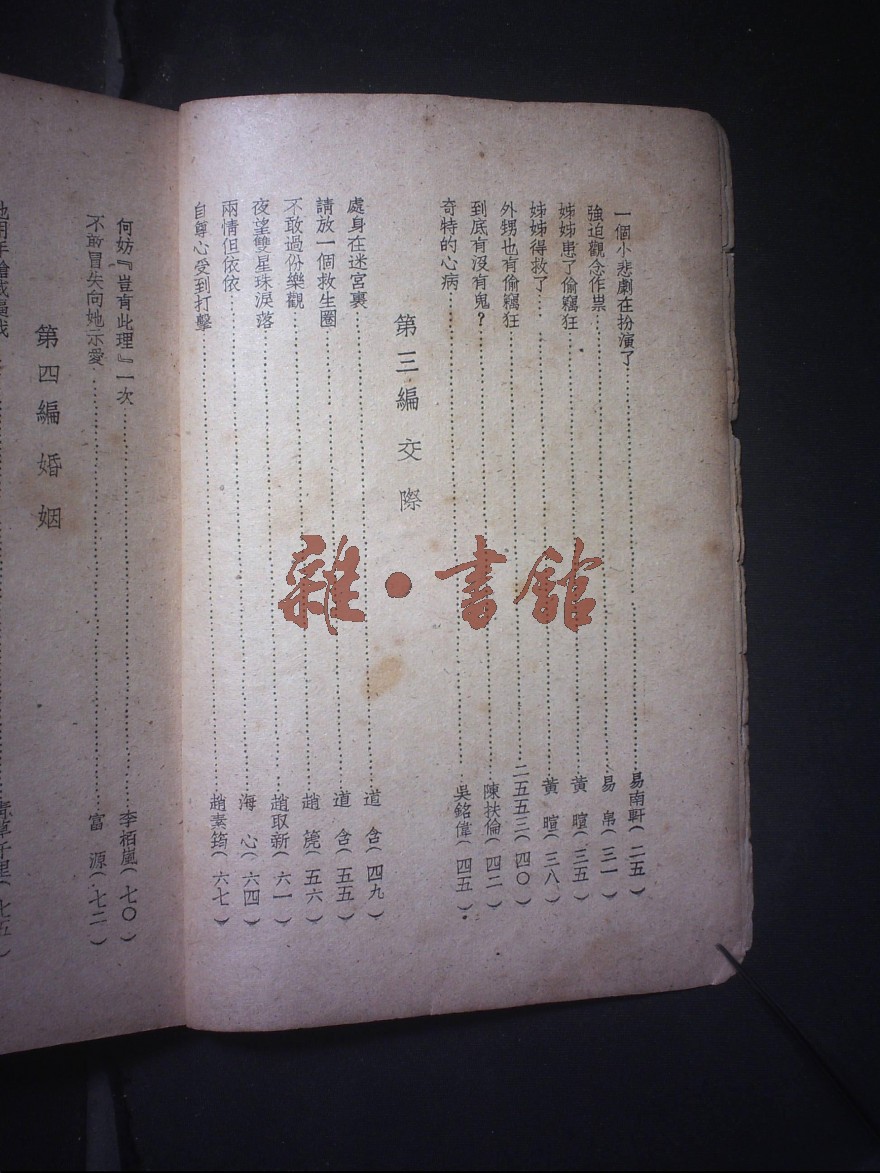 一個小悲劇在扮演了……易南軒(二五)
強迫觀念作祟……易 帛(三一)
姊姊患了偷竊狂……黃 暄(三五)
姊姊得救了……黃 暄(三八)
外甥也有偷竊狂……二五五三(四〇)
到底有没有鬼？……陳扶倫(四二)
奇特的心病……吳銘偉(四五)
第三編 交際
處身在迷宮裏……道 含(四九)
請放一個救生圈……道 含(五五)
不敢過份樂觀……趙 箎(五六)
夜望雙星珠淚落……趙取新(六一)
兩情但依依……海 心(六四)
自尊心受到打擊……趙素筠(六七)
何妨『豈有此理』一次……李栢嵐(七〇)
不敢冒失向她示愛……富 源(七二)
第四編 婚姻
雜·書館